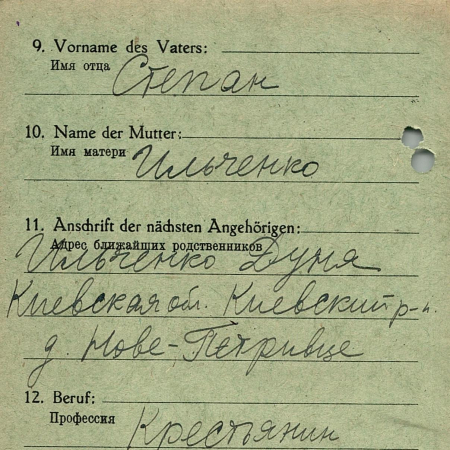 9. Vorname des Vaters:
Имя отца Степан
10. Name der Mutter:
Имя матери Ильченко
11. Anschrift der nächsten Angehörigen:
Адрес ближайших родственников
Ильченко Дуня
Киевская обл. Киевский р-н.
д. Нове-Петривце
12. Beruf:
Профессия Крестьянин